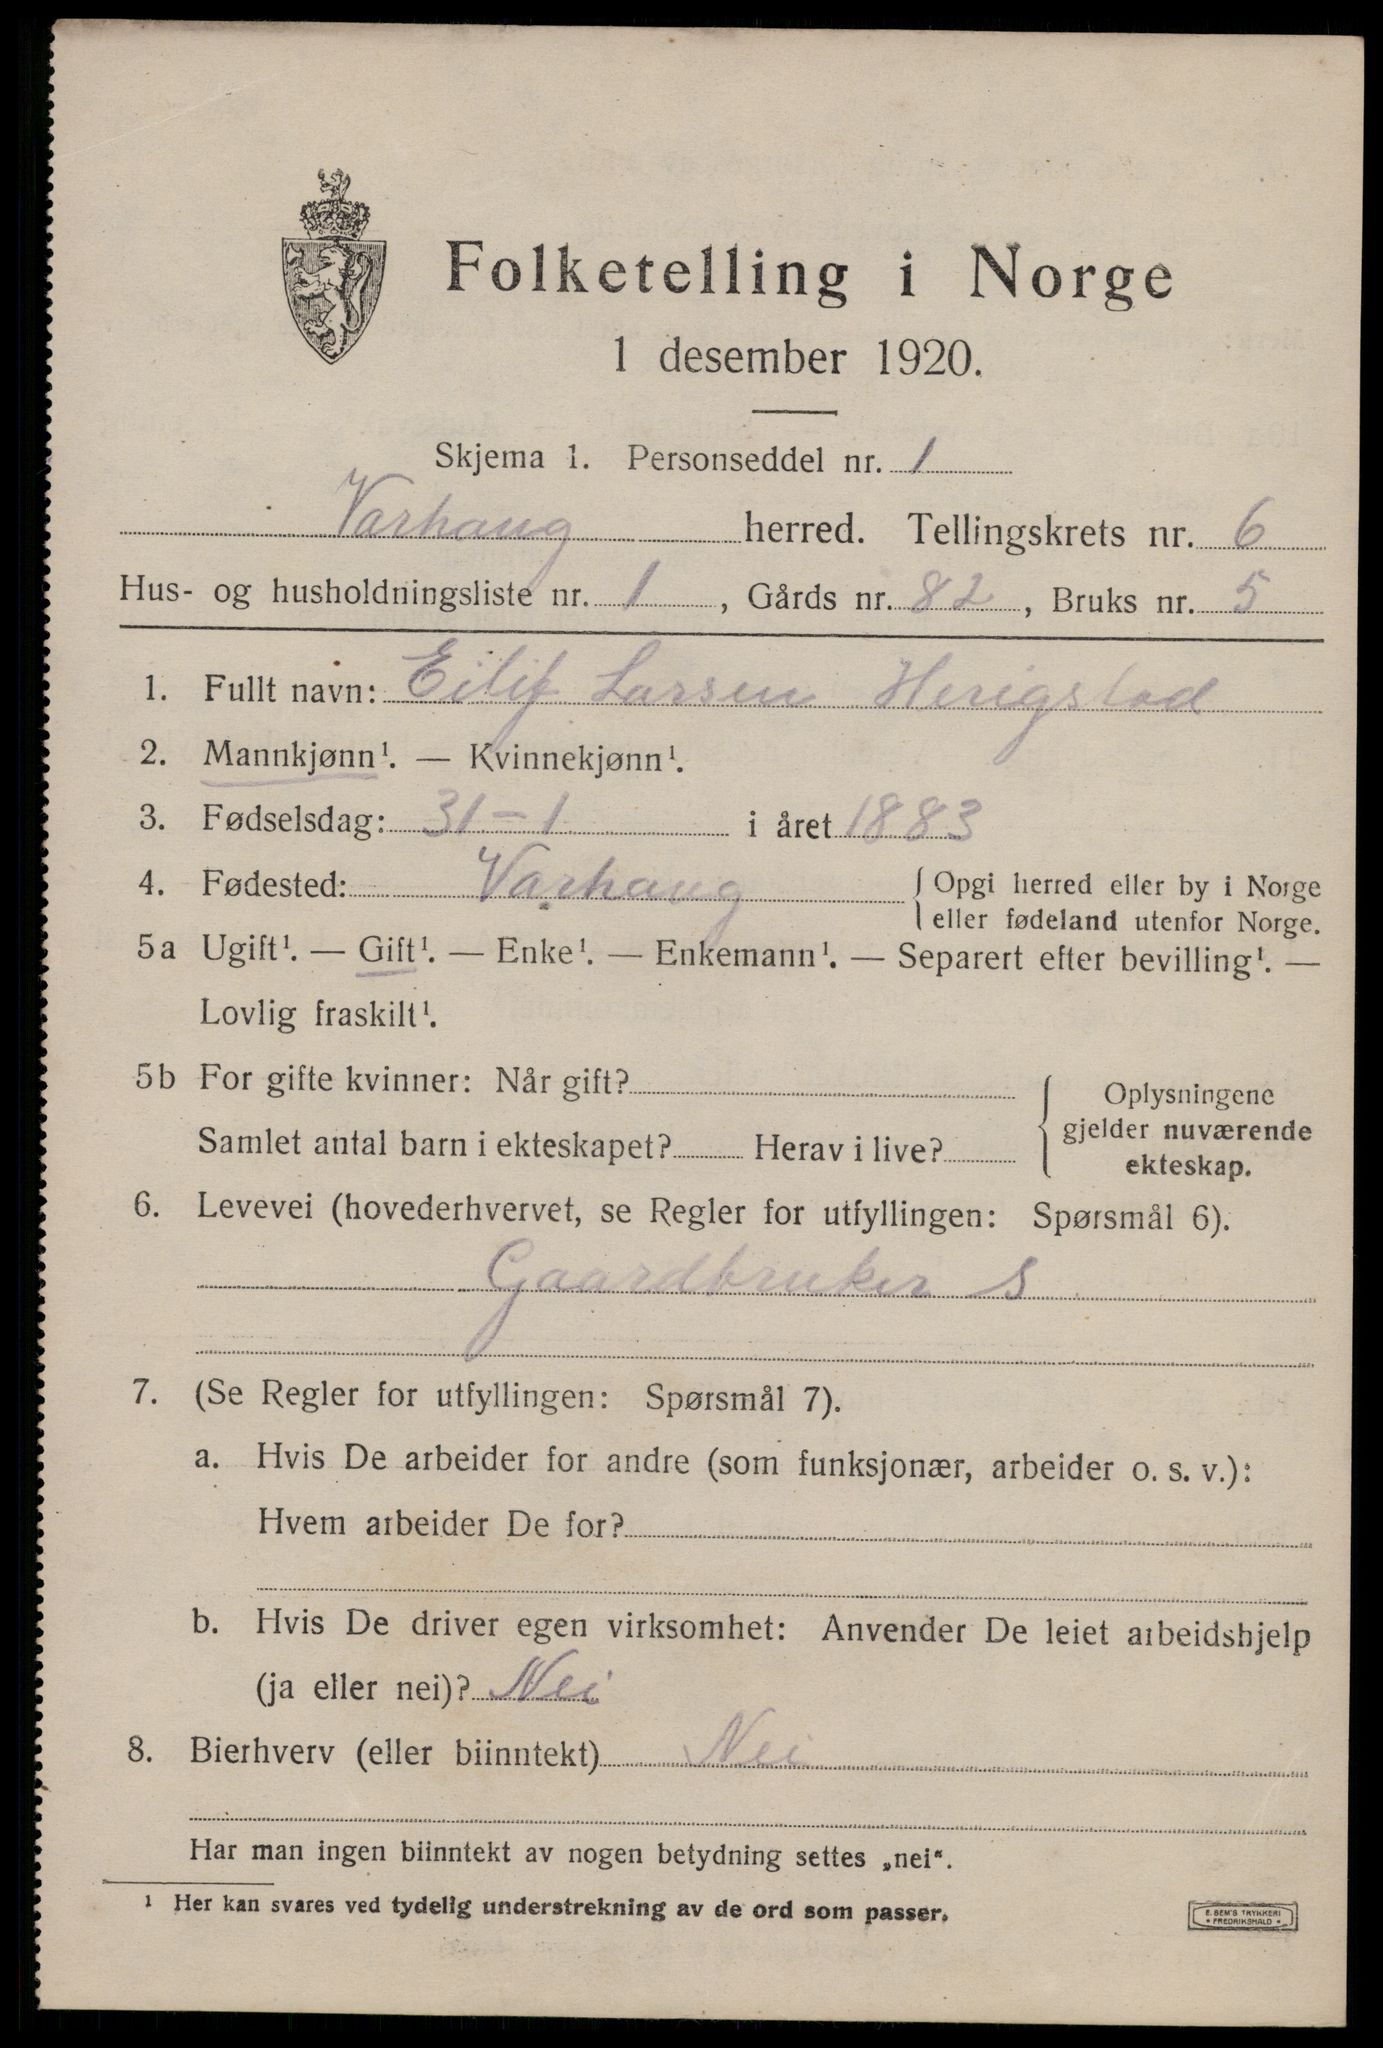 Folketelling i Norge
1 desember 1920.
Skjema 1. Personseddel nr. 1
Varhaug herred. Tellingskrets nr. 6
Hus- og husholdningsliste nr. 1, Gårds nr. 82, Bruks nr. 5
1. Fullt navn: Eilif Larsen Herigstad
2. Mannkjønn¹. — Kvinnekjønn¹.
3. Fødselsdag: 31-1 i året 1883
4. Fødested: Varhaug { Opgi herred eller by i Norge
eller fødeland utenfor Norge.
5a Ugift¹. — Gift¹. — Enke¹. — Enkemann¹. — Separert efter bevilling¹. —
Lovlig fraskilt¹.
5b For gifte kvinner: Når gift?
Samlet antal barn i ekteskapet? Herav i live?
Oplysningene
gjelder nuværende
ekteskap.
6. Levevei (hovederhvervet, se Regler for utfyllingen: Spørsmål 6).
Gaardbruker S
7. (Se Regler for utfyllingen: Spørsmål 7).
a. Hvis De arbeider for andre (som funksjonær, arbeider o. s. v.):
Hvem arbeider De for?
b. Hvis De driver egen virksomhet: Anvender De leiet arbeidshjelp
(ja eller nei)? Nei
8. Bierhverv (eller biinntekt) Nei
Har man ingen biinntekt av nogen betydning settes „nei“.
¹ Her kan svares ved tydelig understrekning av de ord som passer.
E. SEM'S TRYKKERI
• FREDRIKSHALD •